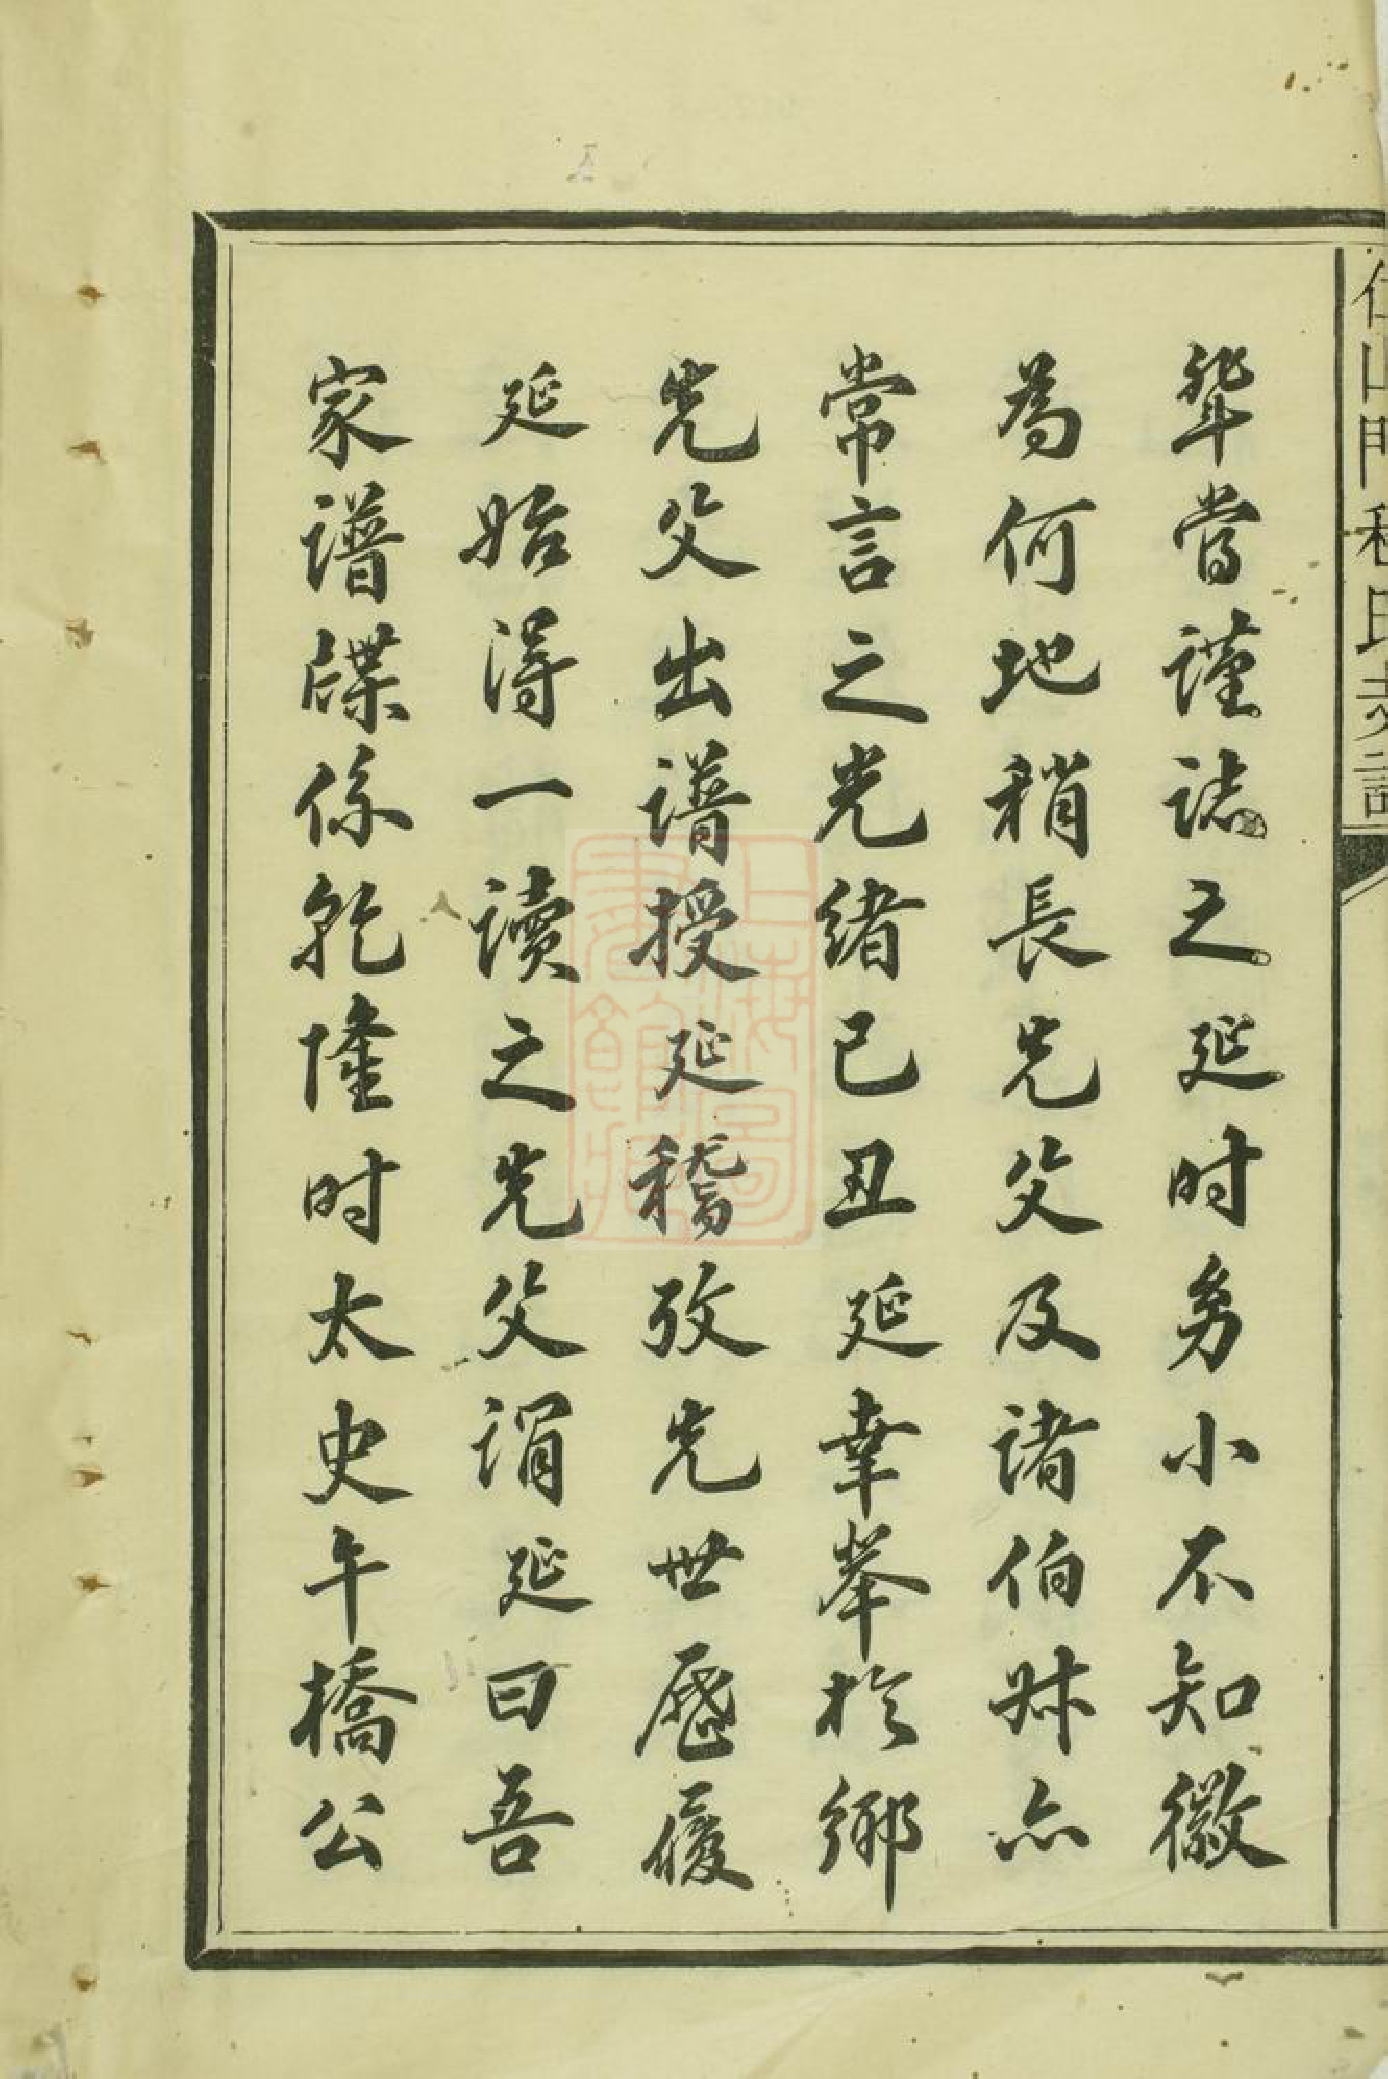 輩當謹誌之延时幼小不知徽
為何地稍長先父及諸伯叔亦
常言之光緒已丑延幸舉於鄉
先父出譜授延稽攷先世歷履
延始得一讀之先父謂延曰吾
家譜牒係乾隆时太史午橋公
上海圖書館藏